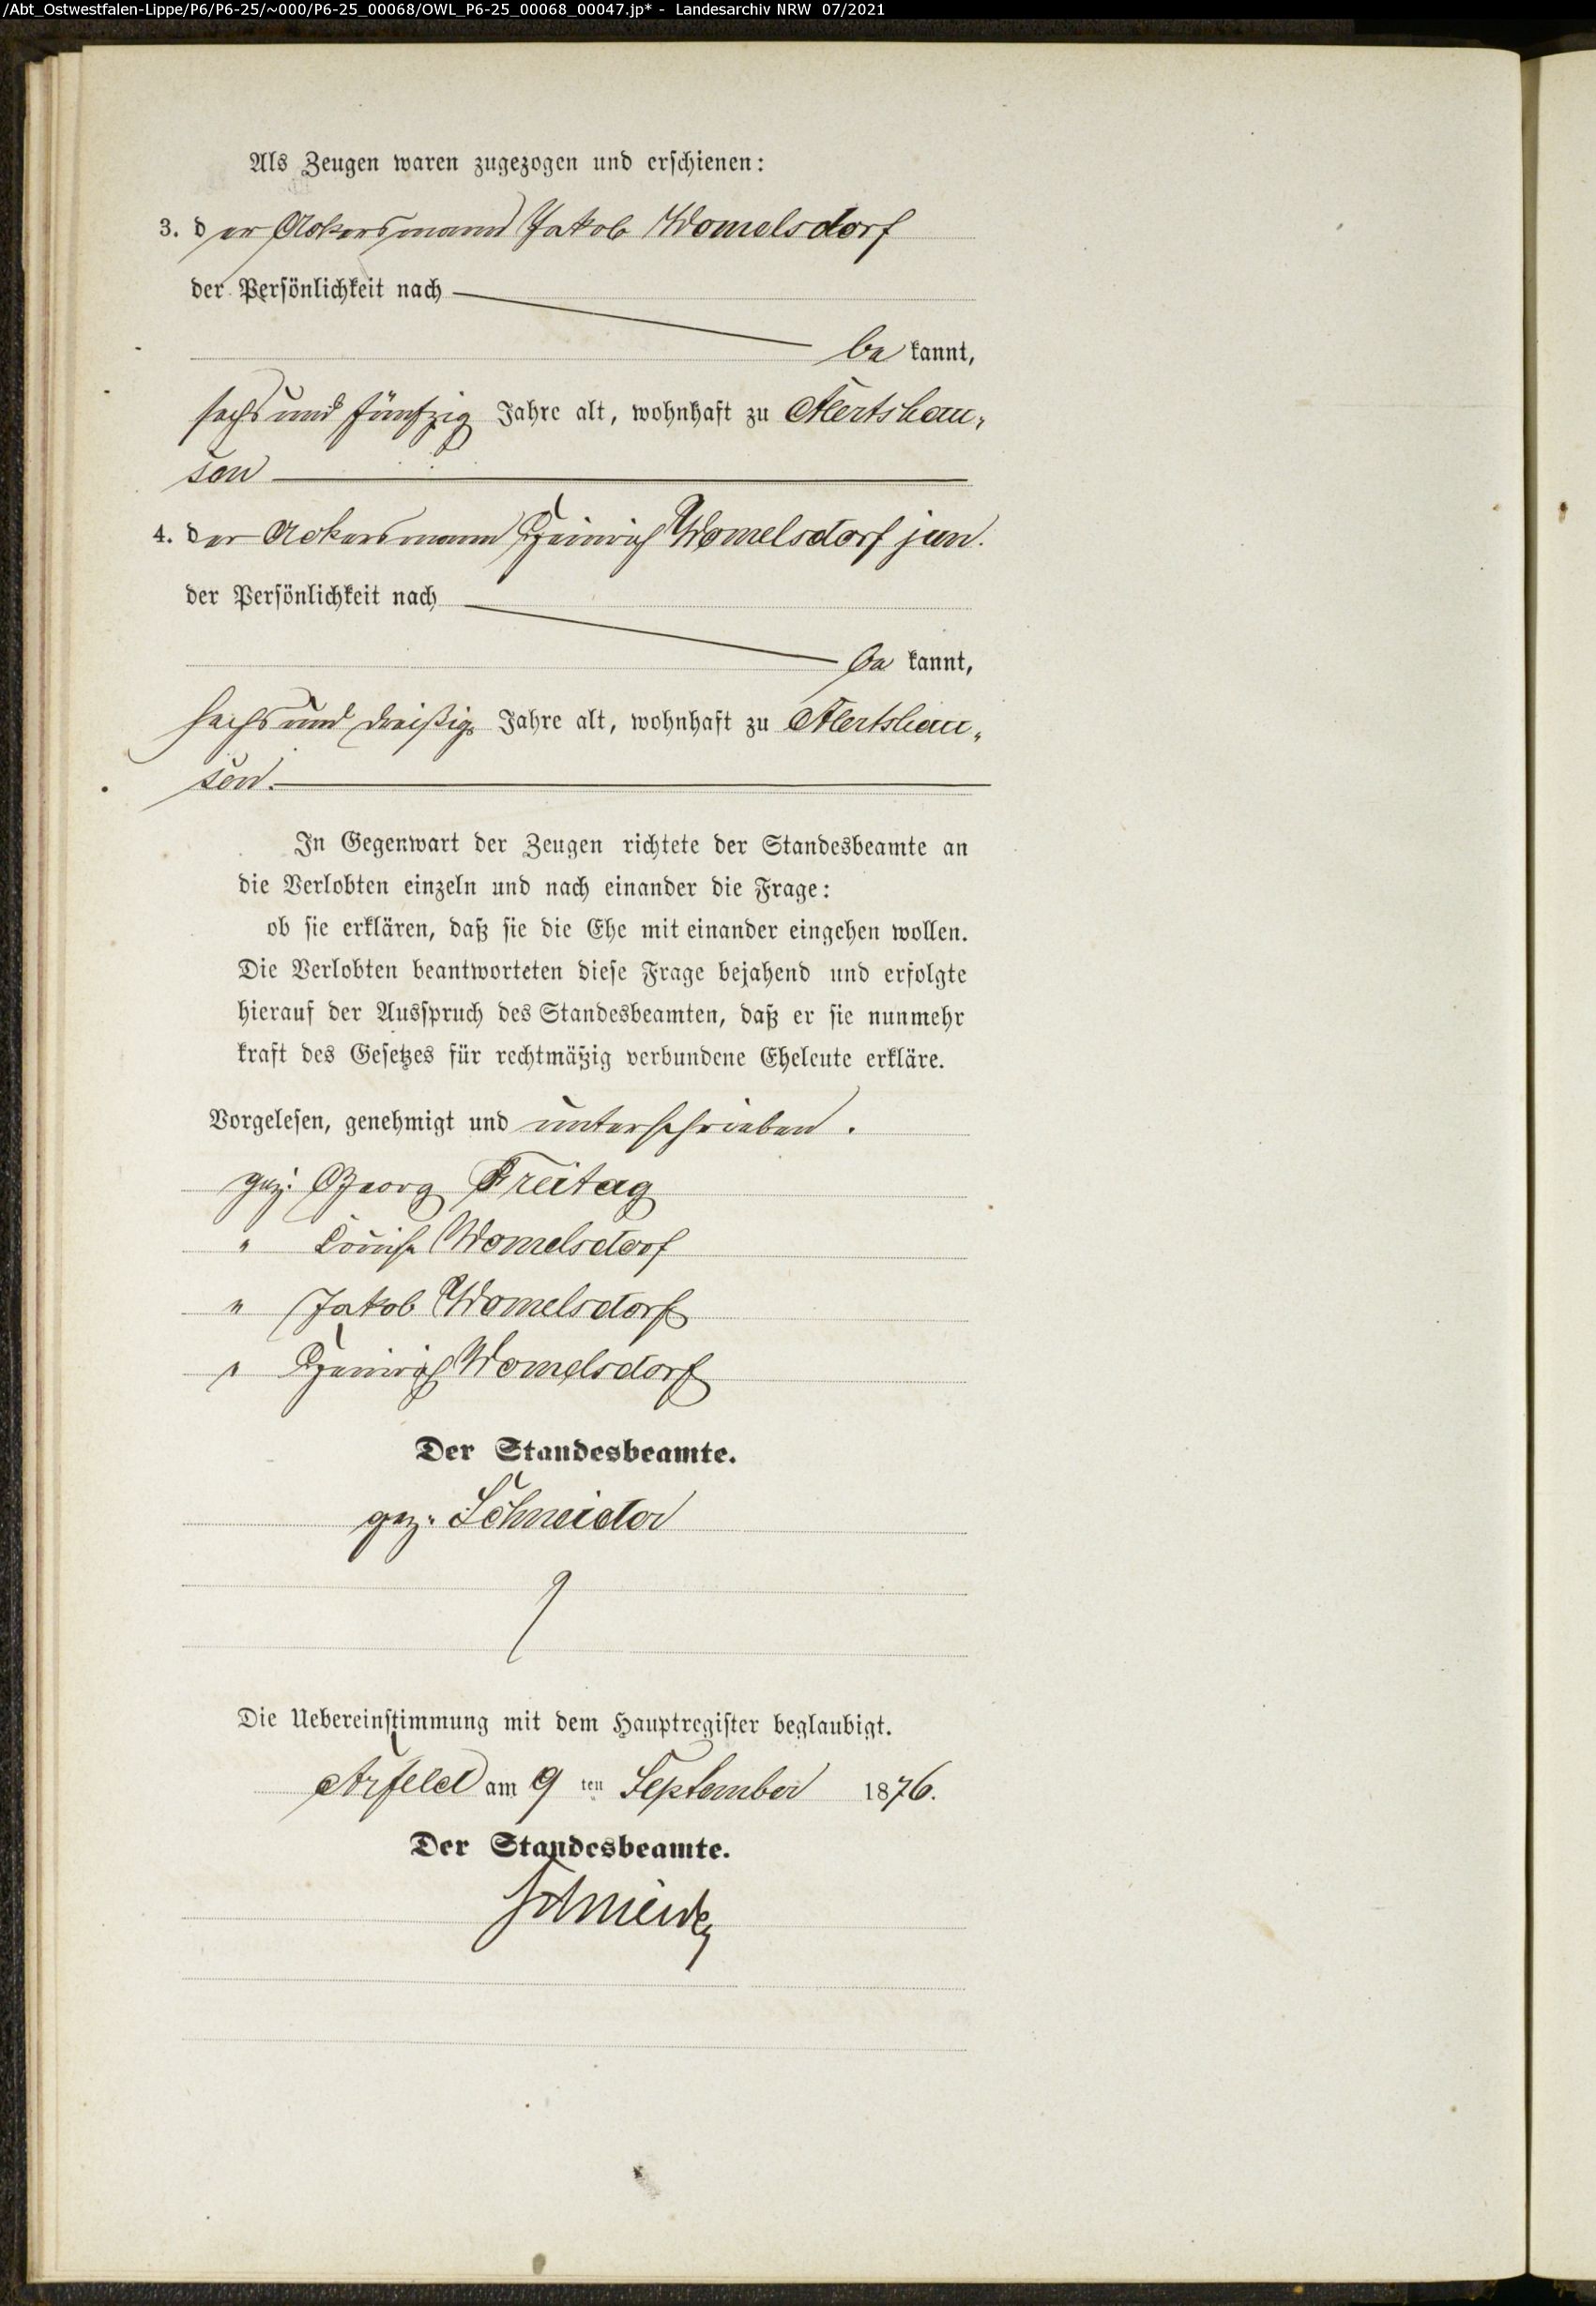 /Abt_Ostwestfalen-Lippe/P6/P6-25/~000/P6-25_00068/OWL_P6-25_00068_00047.jp* - Landesarchiv NRW 07/2021
Als Zeugen waren zugezogen und erschienen:
3. der Ackersmann Jakob Womelsdorf
der Persönlichkeit nach
be kannt,
sechs und fünfzig Jahre alt, wohnhaft zu Alertshau„
sen
4. der Ackersmann Heinrich Womelsdorf jun.
der Persönlichkeit nach
be kannt,
sechs und dreißig Jahre alt, wohnhaft zu Alertshau„
sen.
In Gegenwart der Zeugen richtete der Standesbeamte an
die Verlobten einzeln und nach einander die Frage:
ob sie erklären, daß sie die Ehe mit einander eingehen wollen.
Die Verlobten beantworteten diese Frage bejahend und erfolgte
hierauf der Ausspruch des Standesbeamten, daß er sie nunmehr
kraft des Gesetzes für rechtmäßig verbundene Eheleute erkläre.
Vorgelesen, genehmigt und unterschrieben.
gez. Georg Freitag
" Louise Womelsdorf
" Jakob Womelsdorf
" Heinrich Womelsdorf
Der Standesbeamte.
gez. Schneider
Die Uebereinstimmung mit dem Hauptregister beglaubigt.
Arfeld am 9 ten September 1876.
Der Standesbeamte.
Schneider